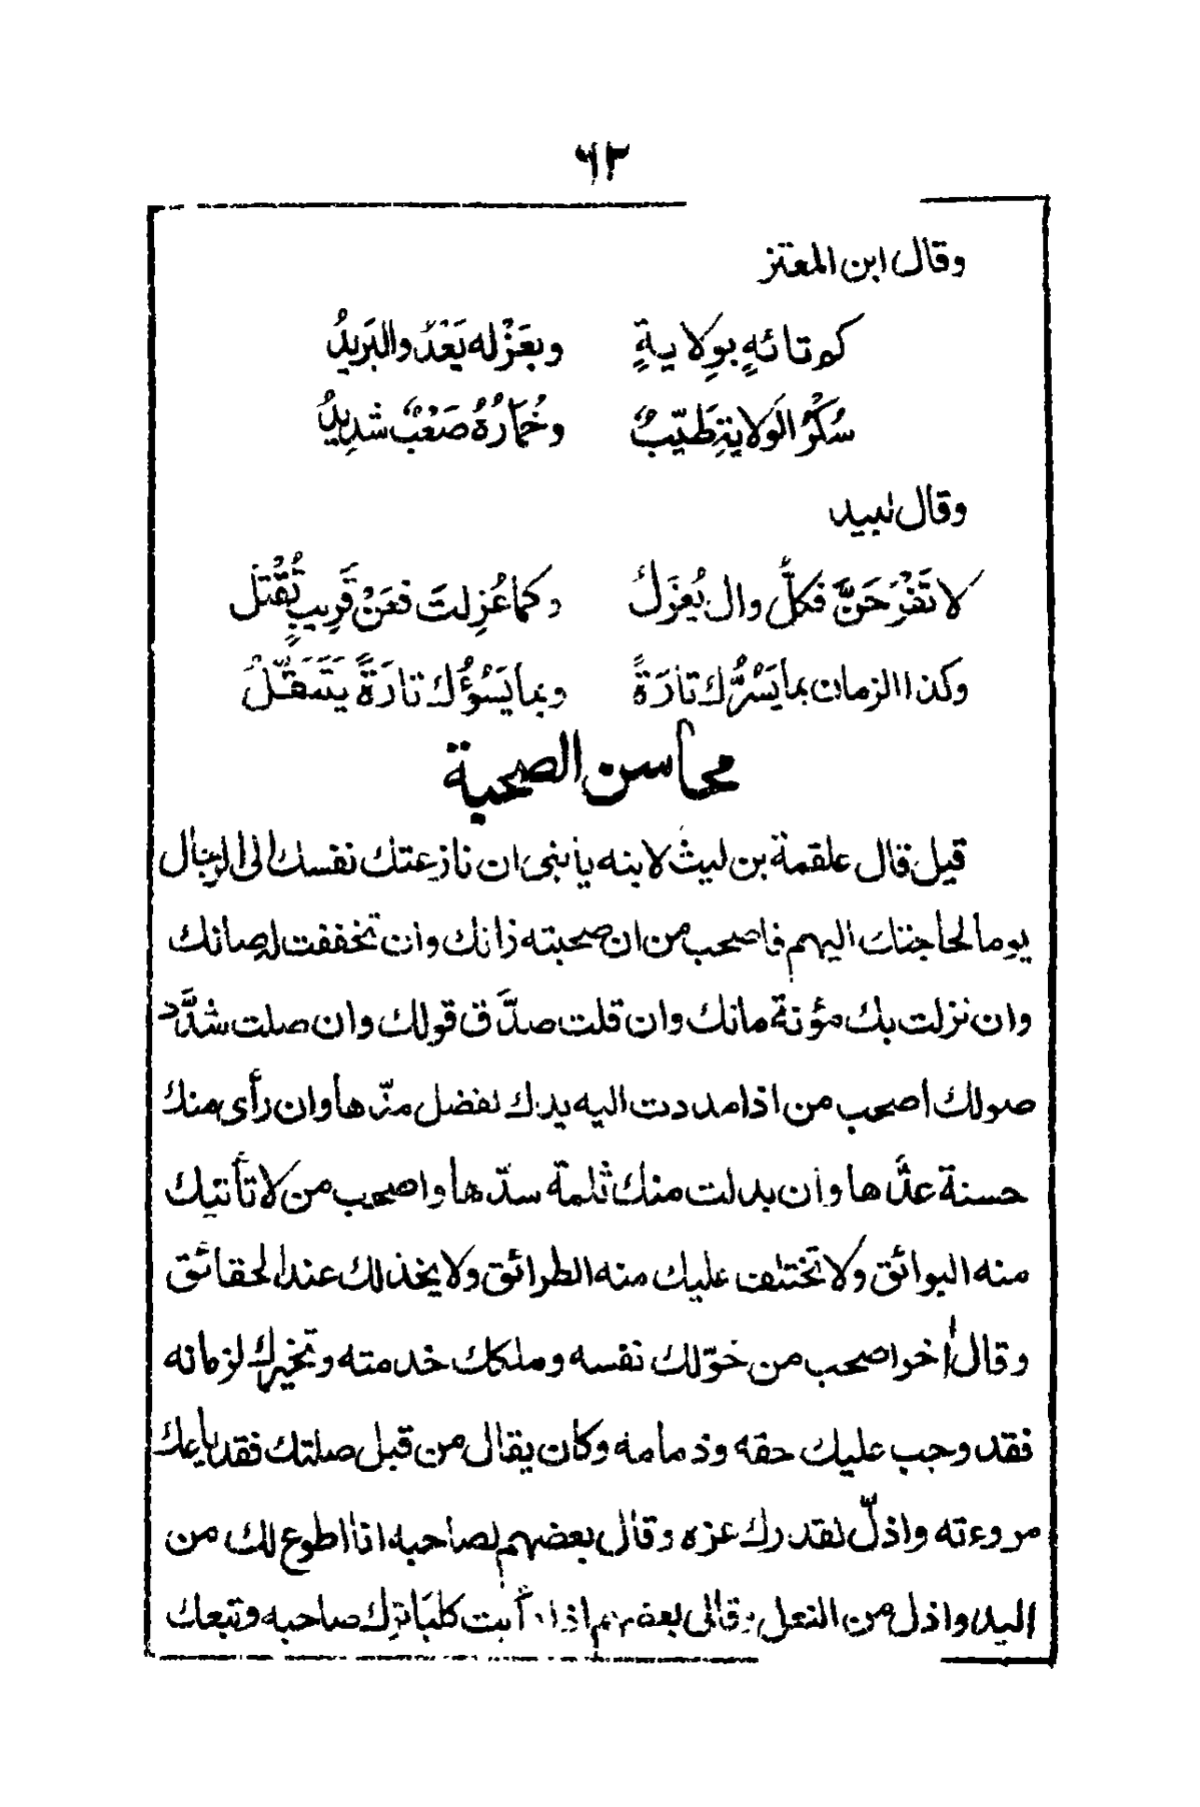 ٦٣
وقال ابن المعتز
كم تائهٍ بوِلايةٍ وبعَزْله يَعْدُ والبَريدُ
سُكْرُ الوَلايةِ طَيّبٌ وخُمَارُهُ صَعْبٌ شدِيدُ
وقال لبيد
لا تَفْرَحَنَّ فكلُّ وال يُعْزَلُ وكما عُزِلتَ فعَنْ قَرِيبٍ تُقْتَلُ
وكذا الزمان بما يَسُرُّك تارَةً وبما يَسُوْؤُك تارَةً يَتَنَقَّلُ
محاسن الصحبة
قيل قال علقمة بن ليث لابنه يا بني ان نازعتك نفسك الى الرجال
يوما لحاجتك اليهم فاصحب من ان صحبته زانك وان تخففت له صانك
وان نزلت بك مؤنة مانك وان قلت صدَّق قولك وان صلت شدَّد
صولك أصحب من اذا مددت اليه يدك لفضل مدّها وان رأى منك
حسنة عدَّها وان بدلت منك ثلمة سدّها واصحب من لا تأتيك
منه البوائق ولا تختلف عليك منه الطرائق ولا يخذلك عند الحقائق
وقال أخر اصحب من خوّلك نفسه وملكك خدمته وتخيرك لزمانه
فقد وجب عليك حقه وذمامه وكان يقال من قبل صلتك فقد باعك
مروءته واذلّ لقدرك عزه وقال بعضهم لصاحبه انا اطوع لك من
اليد واذل من النعل وقال بعضهم اذا رأيت كلبا ترك صاحبه وتبعك